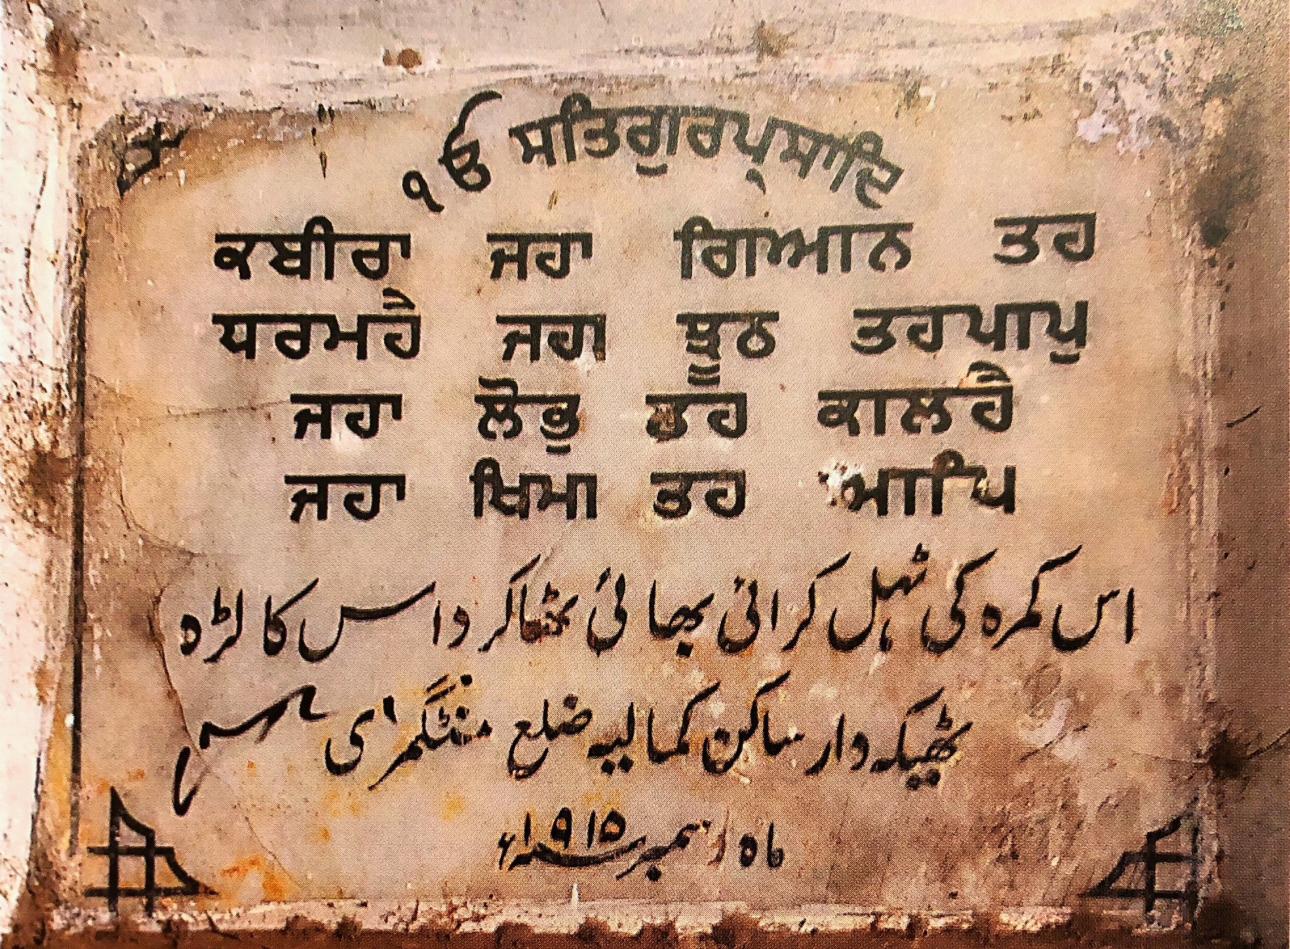 ੧ਓ ਸਤਿਗੁਰਪ੍ਰਸਾਦਿ
ਕਬੀਰਾ ਜਹਾ ਗਿਆਨ ਤਹ
ਧਰਮਹੈ ਜਹਾ ਝੂਠ ਤਹਪਾਪੁ
ਜਹਾ ਲੋਭੁ ਤਹ ਕਾਲਹੈ
ਜਹਾ ਖਿਮਾ ਤਹ ਆਪਿ
اس کمرہ کی ٹہل کرائی بھائی ٹھاکر داس کالڑہ
ٹھیکہ دار ساکن کمالیہ ضلع منٹگمرای
ماہ دسمبر ۱۹۱۵ء